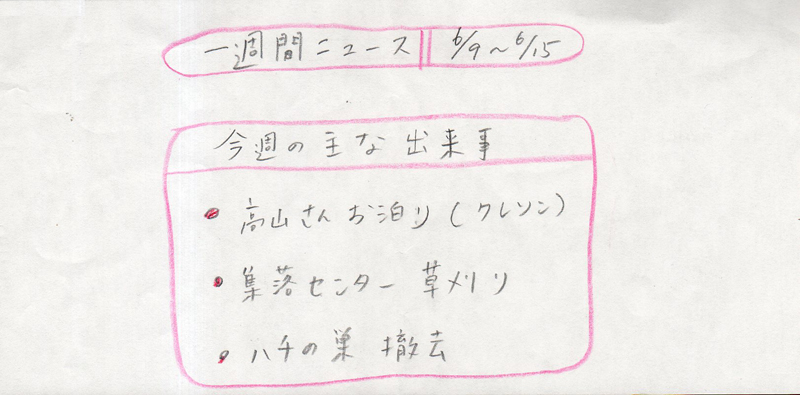 一週間ニュース 6/9〜6/15
今週の主な出来事
• 高山さんお泊り(クレソン)
• 集落センター 草メリリ
• ハチの巣 撤去